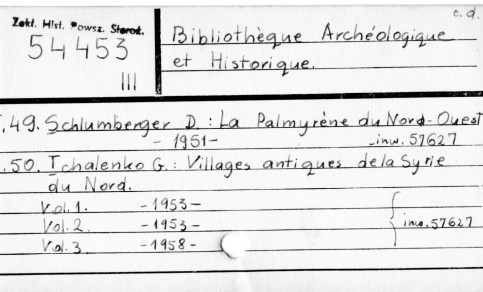 c.d.
Zakł. Hist. Powsz. Staroż.
54453
III
Bibliothèque Archéologique
et Historique.
.49. Schlumberger D.: La Palmyrène du Nord-Ouest
-1951- -inw. 57627
.50. Tchalenko G.: Villages antiques de la Syrie
du Nord.
Vol. 1. -1953-
Vol. 2 -1953- inw. 57627
Vol. 3 -1958-